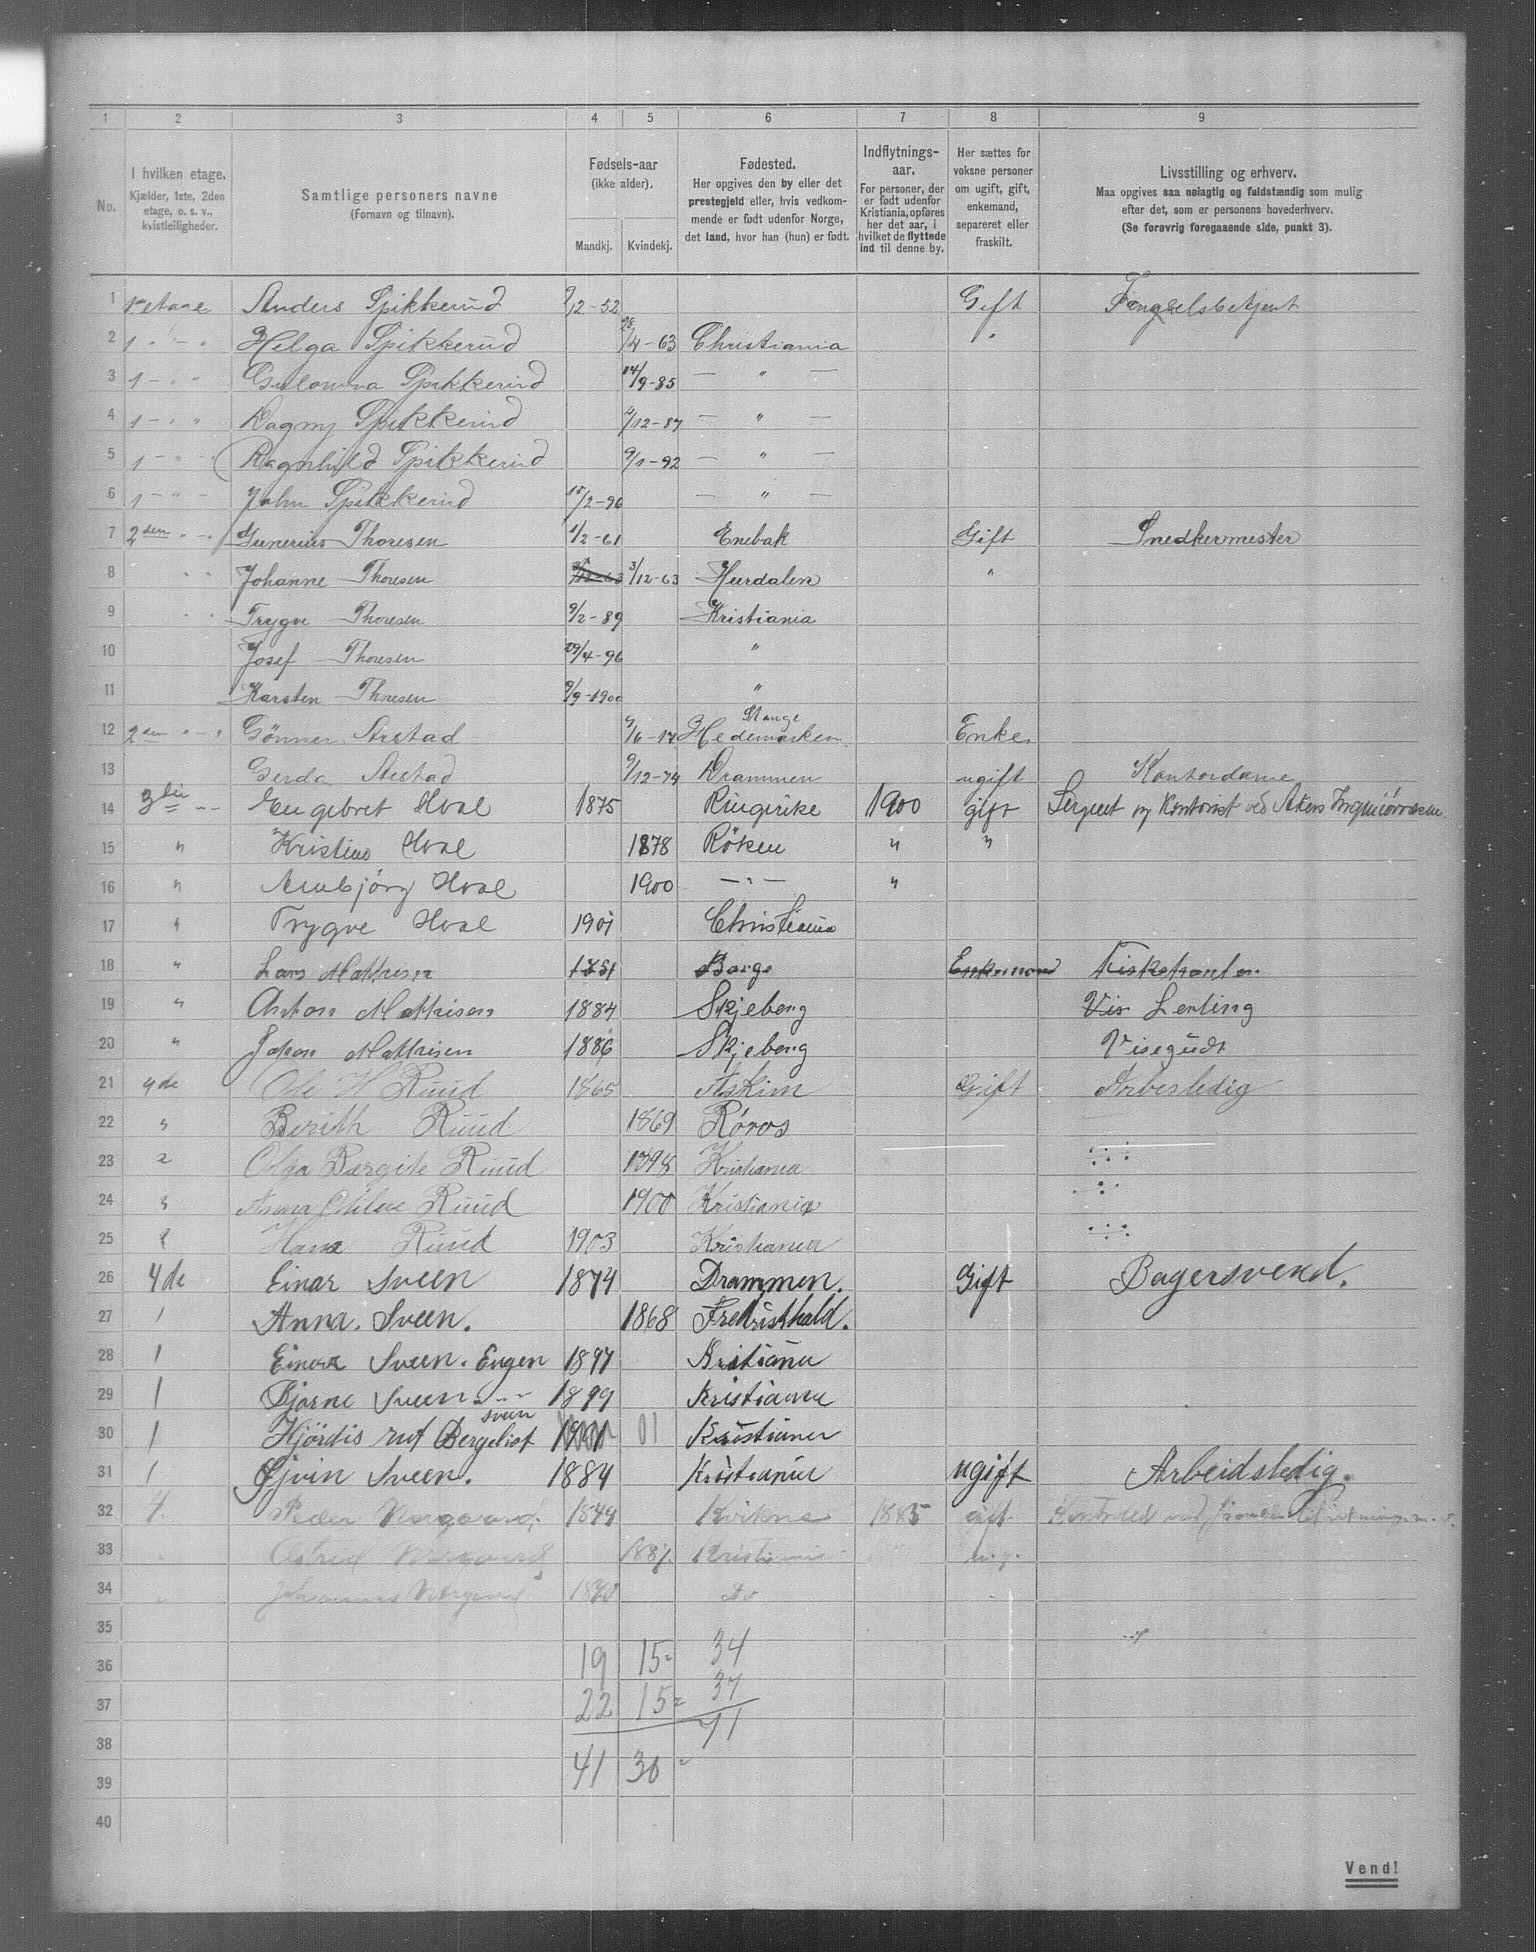 1 2 3 4 5 6 7 8 9
No.
I hvilken etage.
Kjælder, 1ste, 2den
etage, o. s. v.,
kvistleiligheder.
Samtlige personers navne
(Fornavn og tilnavn).
Fødsels-aar
(ikke alder).
Mandkj. Kvindekj.
Fødested.
Her opgives den by eller det
prestegjeld eller, hvis vedkom-
mende er født udenfor Norge,
det land, hvor han (hun) er født.
Indflytnings-
aar.
For personer, der
er født udenfor
Kristiania, opføres
her det aar, i
hvilket de flyttede
ind til denne by.
Her sættes for
voksne personer
om ugift, gift,
enkemand,
separeret eller
fraskilt.
Livsstilling og erhverv.
Maa opgives saa nøiagtig og fuldstændig som mulig
efter det, som er personens hovederhverv.
(Se forøvrig foregaaende side, punkt 3).
1 1ste etage Anders Spikkerud 9/12-52 Gift Fengselsbetjent
2 1 " - " Helga Spikkerud 28/4-63 Christiania "
3 1 - " " Spikkerud 14/9-85 — " —
4 1 - " " Dagny Spikkerud /12-87 — " —
5 1 - " - Ragnhild Spikkerud 9/1-92 — " —
6 1 - " - John Spikkerud 15/2-96 — " —
7 2den " - " Gunerius Thoresen 1/2-61 Enebak Gift Snedkermester
8 " " Johanne Thoresen 3/12-63 Hurdalen "
9 " " Trygve Thoresen 9/2-89 Kristiania
10 Josef Thoresen 29/4-96 "
11 Karsten Thoresen 9/9-1900 "
Stange
12 2den " - " Gönner Arstad 9/6-17 Hedemarken Enke
13 Gerda Arstad 9/12-74 Drammen ugift Kontordame
14 3die - - Engebret Hval 1875 Ringerike 1900 gift Sergent og Kontorist ved Akers
15 " Kristine Hval 1878 Röken " "
16 " Ambjörg Hval 1900 — " — "
17 " Trygve Hval 1901 Christiania
18 " Lars Mathisen 1851 Borge Enkemand Fiskehandler
19 " Anton Mathisen 1884 Skjeberg Vis Lerling
20 " Johan Mathisen 1886 Skjeberg Visegudt
21 4de Ole H Ruud 1865 Askim Gift Arbesledig
22 " Berith Ruud 1869 Røros
23 " Olga Bergite Ruud 1898 Kristiania
24 " Anna Ruud 1900 Kristiania
25 " Hans Ruud 1903 Kristiania
26 4de Einar Sveen 1874 Drammen. Gift Bagersvend.
27 1 Anna. Sveen. 1868 Fredrikshald.
28 1 Einar Sveen. Eugen 1897 Kristiania
29 1 Bjarne Sveen - " - 1899 Kristiania
sveen
30 1 Hjördis rut Bergeliot 01 Kristiania
31 1 Ejvin Sveen. 1884 Kristiania ugift Arbeidsledig.
32 4. Peder Norgaard. 1844 Kvikne 1885 gift
33 Astrid Norgaard Kristiania ug.
34 Johannes Norgaard Do
35
36 19 15 = 34
37 22 15 = 37
38 71
39 41 30 =
40
Vend!